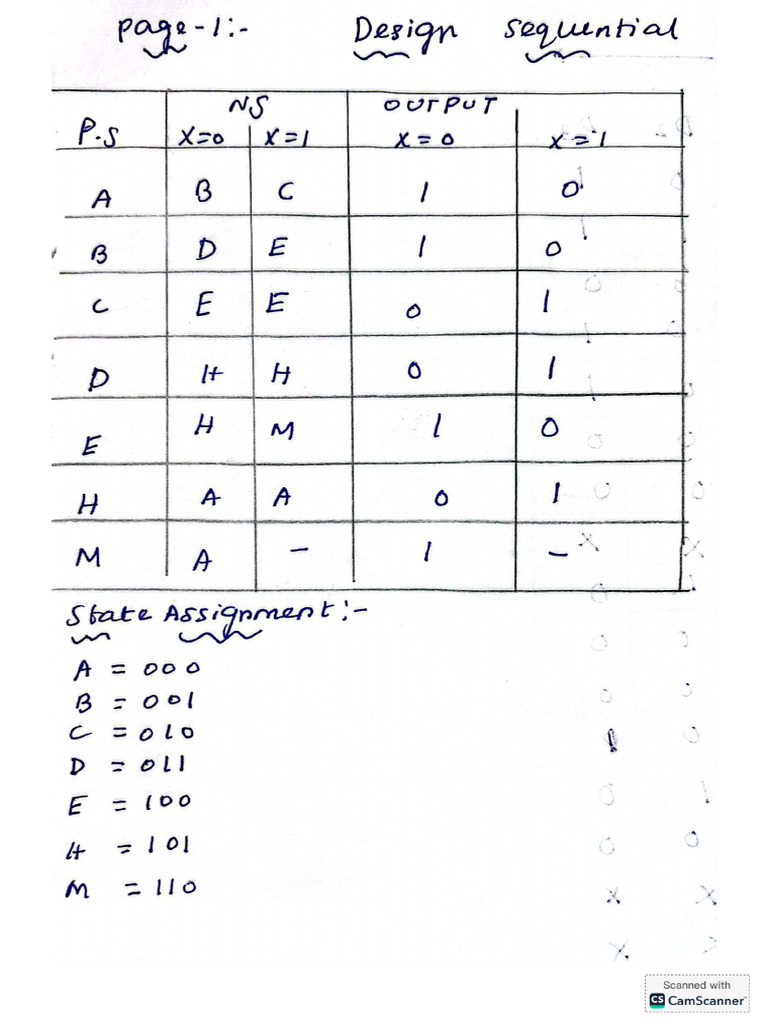 page-1:- Design sequential
NS OUTPUT
P.S X=0 X=1 X=0 X=1
A B C 1 0
B D E 1 0
C E E 0 1
D H H 0 1
E H M 1 0
H A A 0 1
M A - 1 -
State Assignment:-
A = 000
B = 001
C = 010
D = 011
E = 100
H = 101
M = 110
Scanned with
CS CamScanner